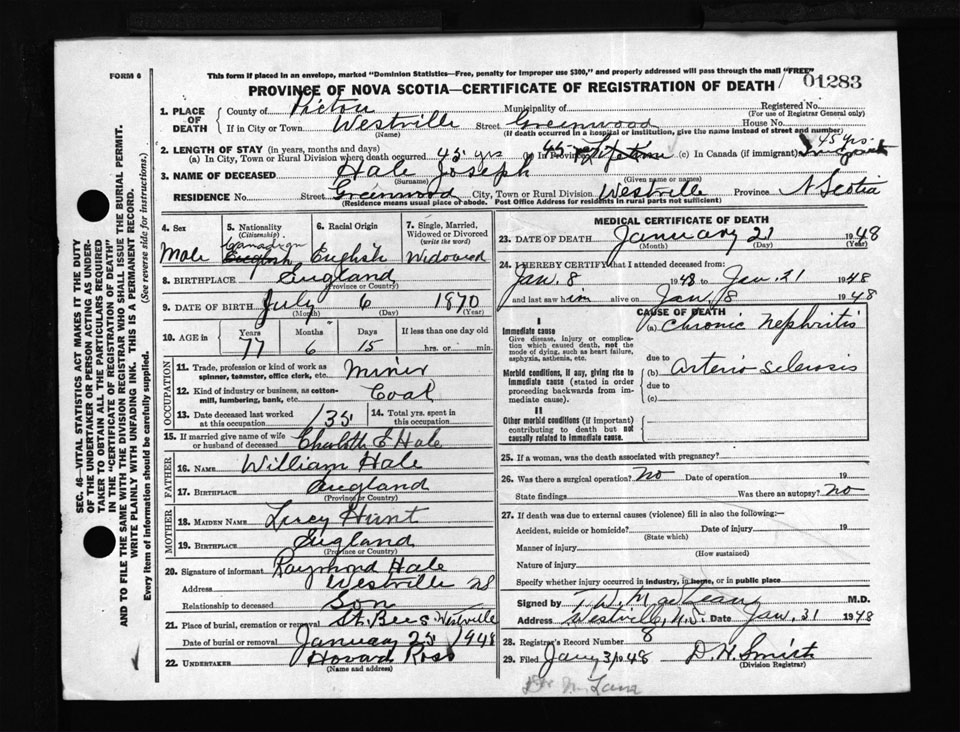 FORM 6
This form if placed in an envelope, marked "Dominion Statistics—Free, penalty for improper use $300," and properly addressed will pass through the mail "FREE"
PROVINCE OF NOVA SCOTIA—CERTIFICATE OF REGISTRATION OF DEATH
01283
1. PLACE OF DEATH
County of Pictou Municipality of Registered No.
(For use of Registrar General only)
If in City or Town Westville Street Greenwood House No.
(Name) (If death occurred in a hospital or institution, give the name instead of street and number)
2. LENGTH OF STAY (in years, months and days)
(a) In City, Town or Rural Division where death occurred 45 yrs In Province 45 (c) In Canada (if immigrant) 45 yrs
3. NAME OF DECEASED Hale Joseph
(Surname) (Given name or names)
RESIDENCE No. Street Greenwood City, Town or Rural Division Westville Province N Scotia
(Residence means usual place of abode. Post Office Address for residents in rural parts not sufficient)
4. Sex Male
5. Nationality (Citizenship) Canadian English
6. Racial Origin English
7. Single, Married, Widowed or Divorced (write the word) Widowed
8. BIRTHPLACE England
(Province or Country)
9. DATE OF BIRTH July 6 1870
(Month) (Day) (Year)
10. AGE in Years Months Days If less than one day old
77 6 15 hrs. or min.
OCCUPATION
11. Trade, profession or kind of work as spinner, teamster, office clerk, etc. Miner
12. Kind of industry or business, as cotton-mill, lumbering, bank, etc. Coal
13. Date deceased last worked at this occupation 1935
14. Total yrs. spent in this occupation
15. If married give name of wife or husband of deceased Charlotte E Hale
FATHER
16. NAME William Hale
17. BIRTHPLACE England
(Province or Country)
MOTHER
18. MAIDEN NAME Lucy Hunt
19. BIRTHPLACE England
(Province or Country)
20. Signature of informant Raymond Hale
Address Westville NS
Relationship to deceased Son
21. Place of burial, cremation or removal St. Bees Westville
Date of burial or removal January 23 1948
22. UNDERTAKER Howard Ross
(Name and address)
MEDICAL CERTIFICATE OF DEATH
23. DATE OF DEATH January 21 1948
(Month) (Day) (Year)
24. I HEREBY CERTIFY that I attended deceased from:
Jan. 8 1948 to Jan. 21 1948
and last saw him alive on Jan. 18 1948
CAUSE OF DEATH
I
Immediate cause
Give disease, injury or complication which caused death, not the mode of dying, such as heart failure, asphyxia, asthenia, etc.
(a) Chronic Nephritis
due to
Morbid conditions, if any, giving rise to immediate cause (stated in order proceeding backwards from immediate cause).
(b) Arterio Sclerosis
due to
(c)
II
Other morbid conditions (if important) contributing to death but not causally related to immediate cause.
25. If a woman, was the death associated with pregnancy?
26. Was there a surgical operation? No Date of operation 19
State findings Was there an autopsy? No
27. If death was due to external causes (violence) fill in also the following:—
Accident, suicide or homicide? Date of injury 19
(State which)
Manner of injury
(How sustained)
Nature of injury
Specify whether injury occurred in industry, in home, or in public place
Signed by T. W. MacLean M.D.
Address Westville, N.S. Date Jan. 31 1948
28. Registrar's Record Number 8
29. Filed Jany 31 1948 D. H. Smith
(Division Registrar)
SEC. 46—VITAL STATISTICS ACT MAKES IT THE DUTY
OF THE UNDERTAKER OR PERSON ACTING AS UNDERTAKER
TO OBTAIN ALL THE PARTICULARS REQUIRED
IN THE "CERTIFICATE OF REGISTRATION OF DEATH"
AND TO FILE THE SAME WITH THE DIVISION REGISTRAR WHO SHALL ISSUE THE BURIAL PERMIT.
WRITE PLAINLY WITH UNFADING INK. THIS IS A PERMANENT RECORD.
Every item of information should be carefully supplied. (See reverse side for instructions).